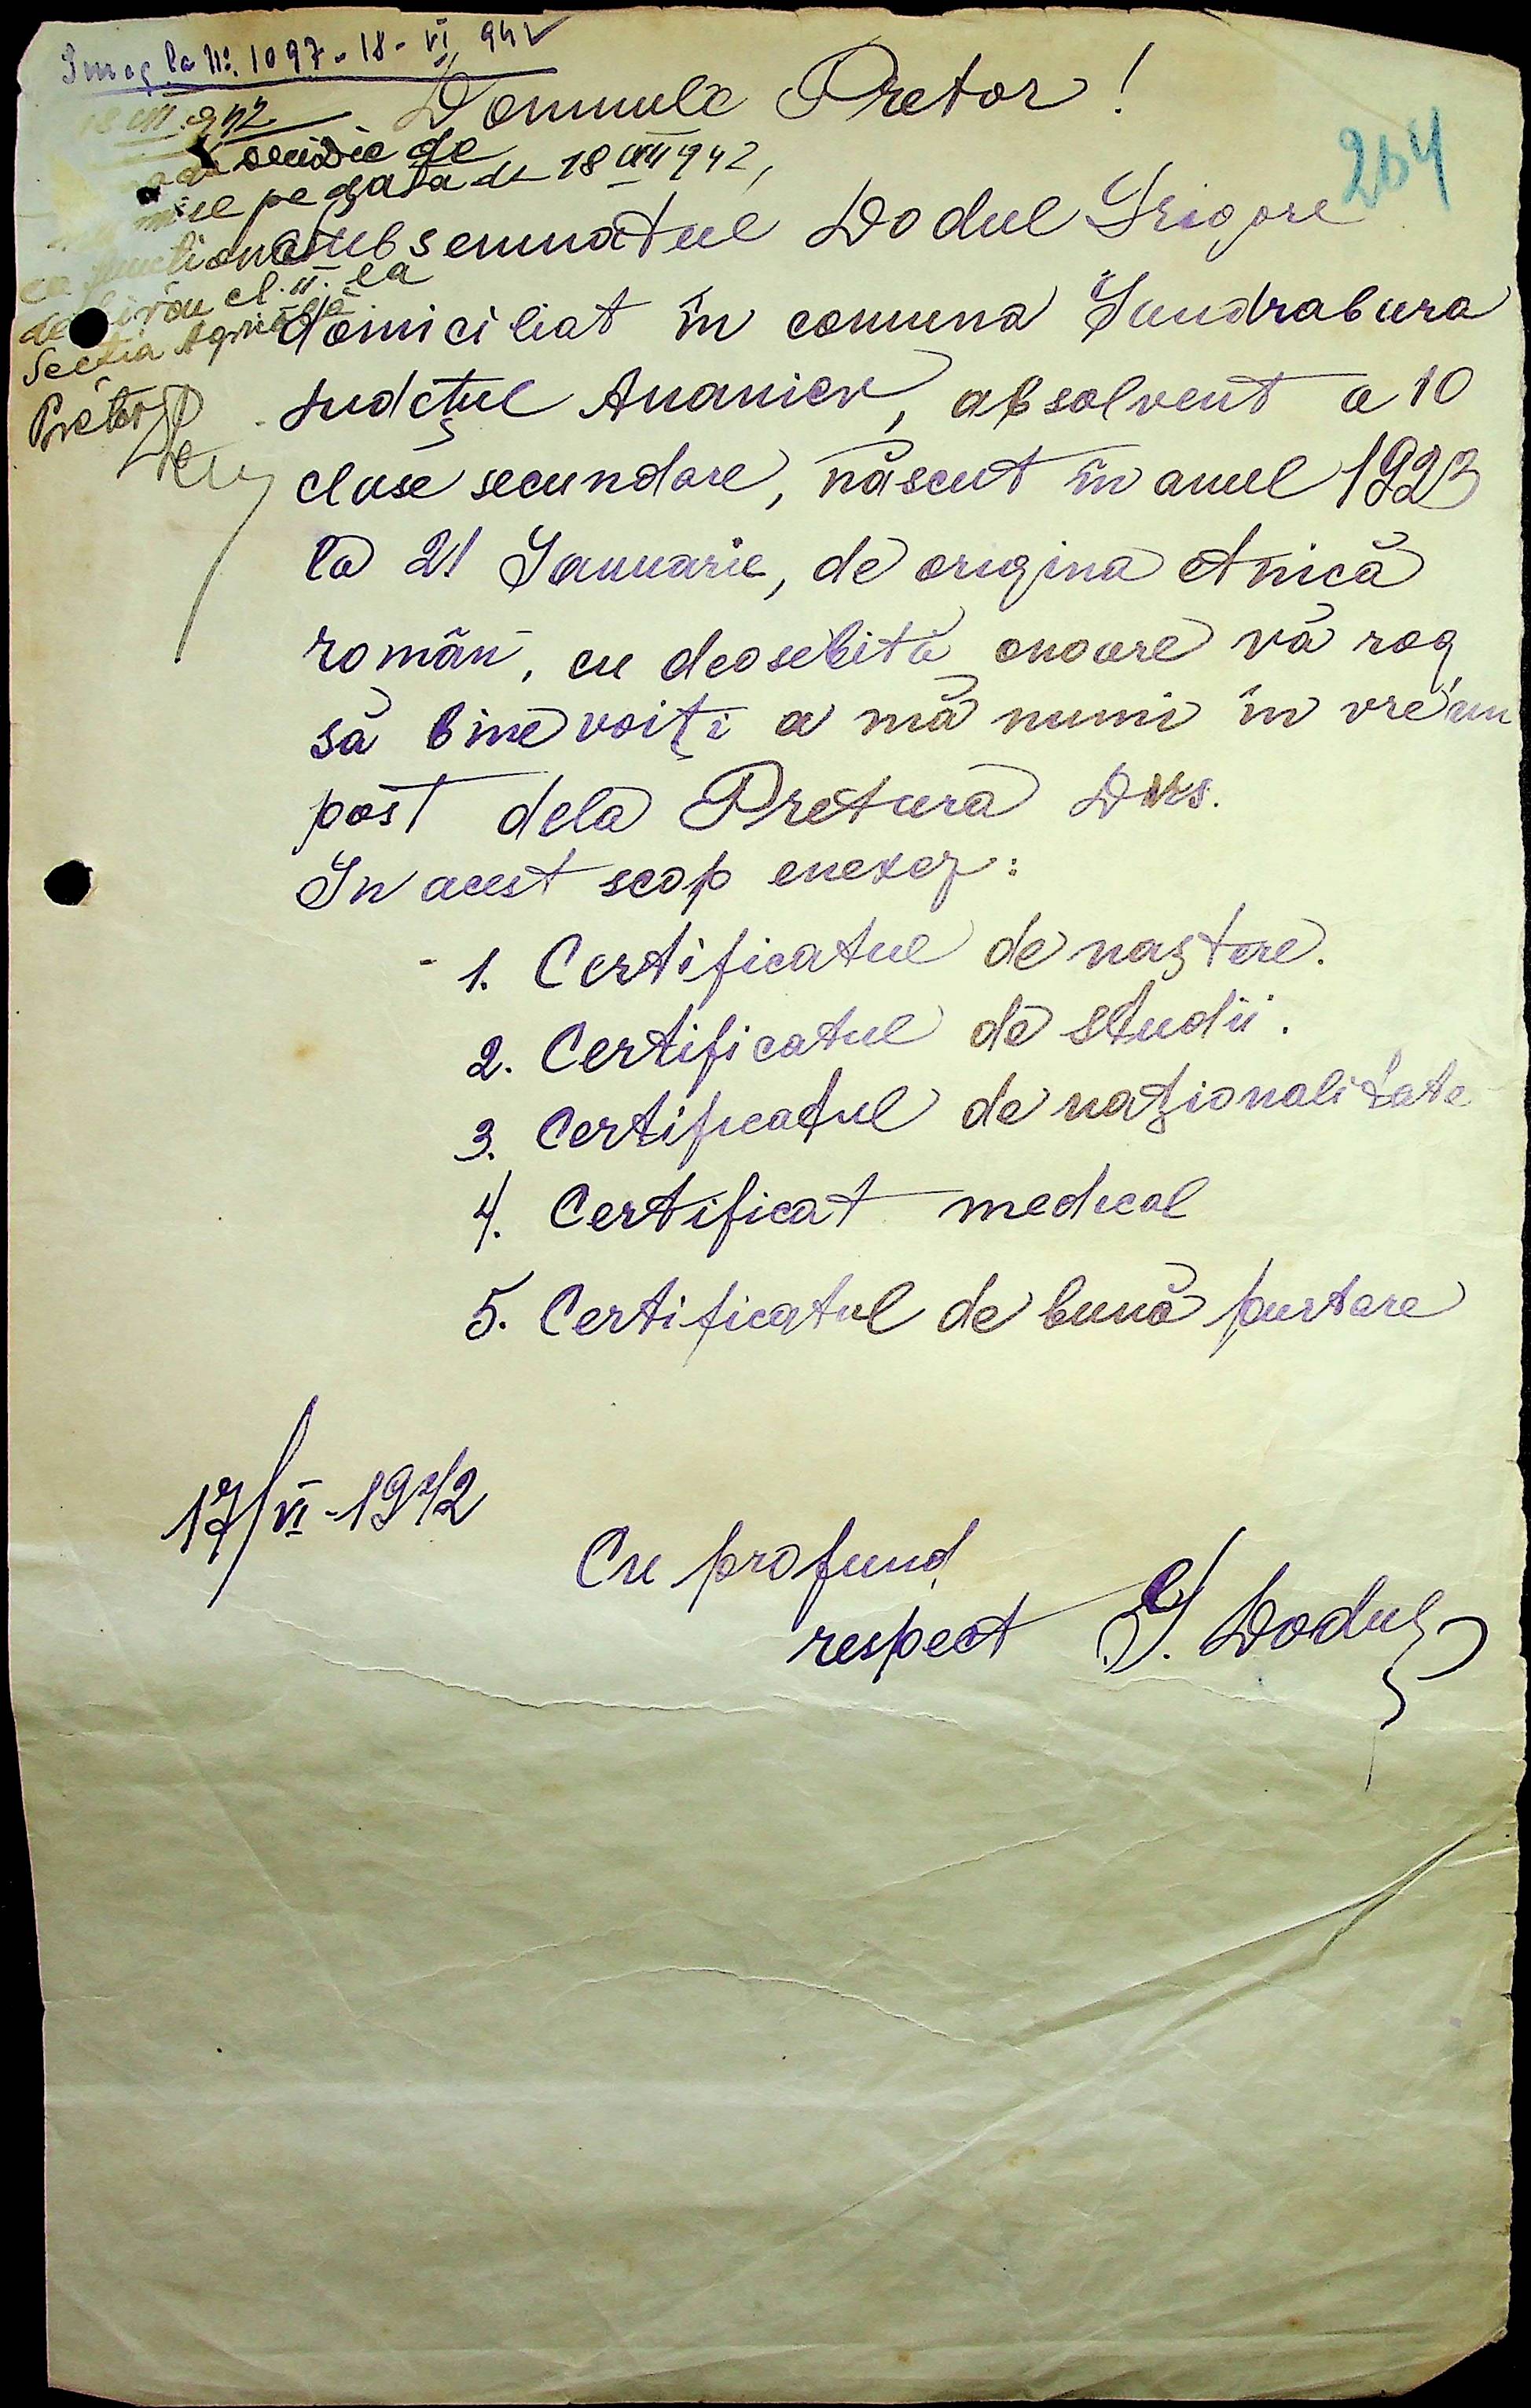 Inreg la No. 1097 - 18 - VI 942
Domnule Pretor!
264
18 VII 942
de
se pe data de 18 VII 942,
ca functionar
de birou cl. II. la
Secția Agricolă
Pretor
Subsemnatul Dodul Grigore
domiciliat în comuna Gandrabura
Județul Ananiev, absolvent a 10
clase secundare, născut în anul 1923
la 21 Ianuarie, de origina etnică
român, cu deosebită onoare vă rog
să binevoiți a mă numi în vre'un
post dela Pretura Dvs.
In acest scop enexez:
1. Certificatul de naștere.
2. Certificatul de studii.
3. Certificatul de naționalitate
4. Certificat medical
5. Certificatul de bună purtare
17/VI-1942
Cu profund
respect G. Dodul